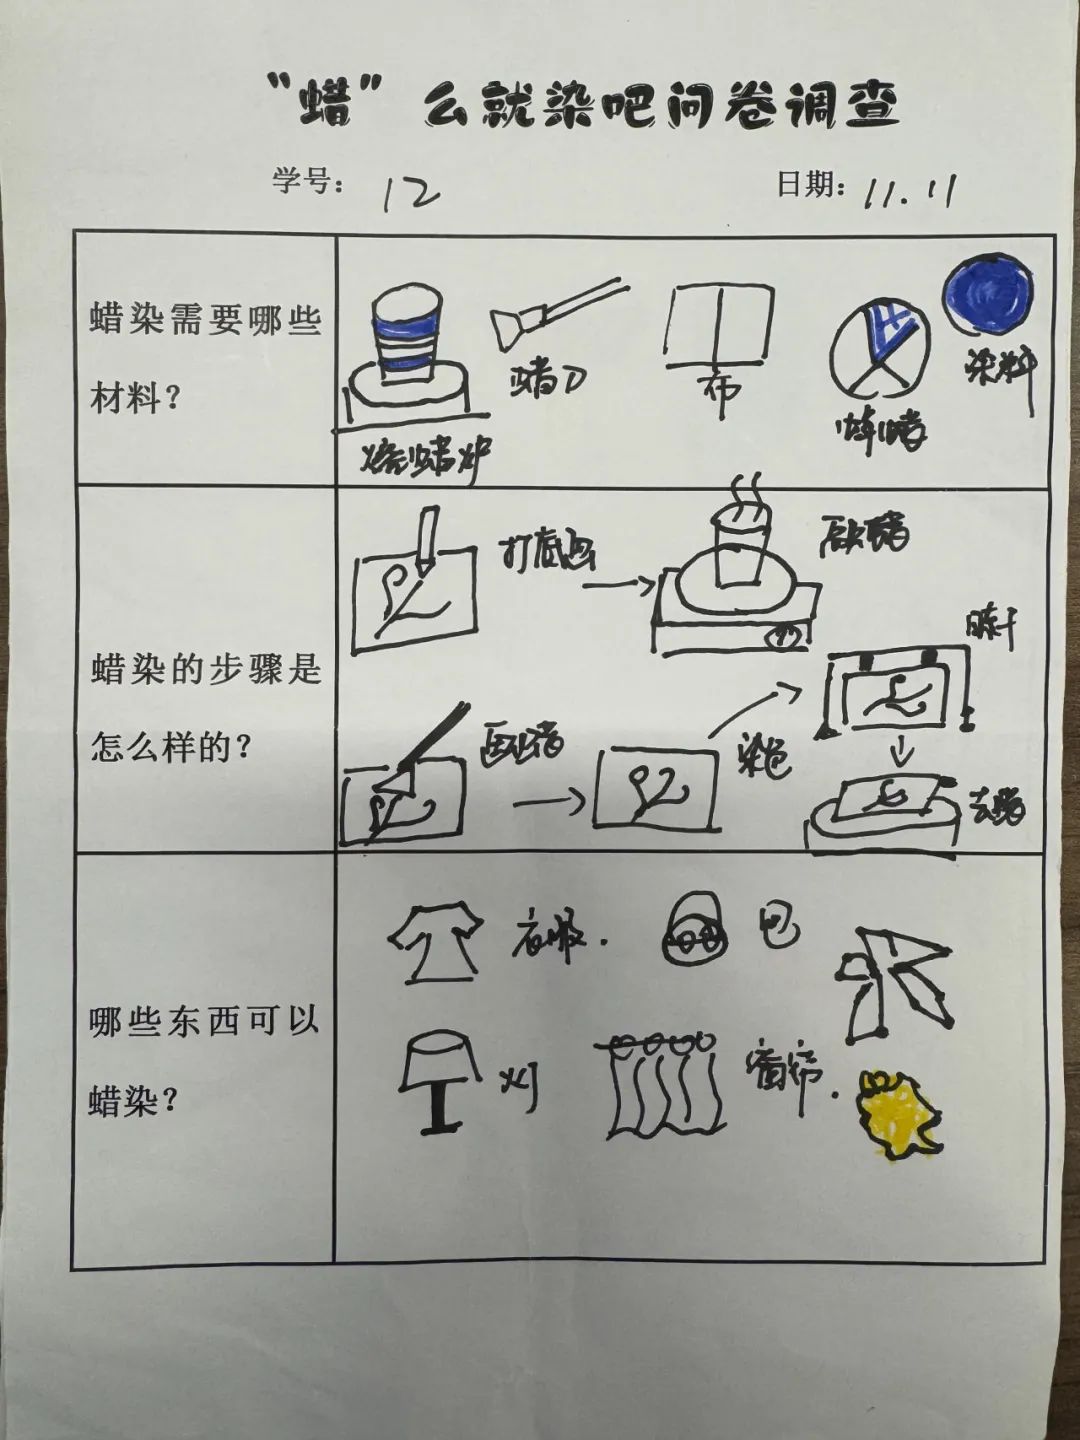 “蜡”么就染吧问卷调查
学号：12
日期：11.11
蜡染需要哪些
材料？
熔蜡炉
蜡刀
布
染料
蜡染的步骤是
怎么样的？
打底画
融蜡
画蜡
染色
晾干
去蜡
哪些东西可以
蜡染？
衣服.
包
灯
窗帘.